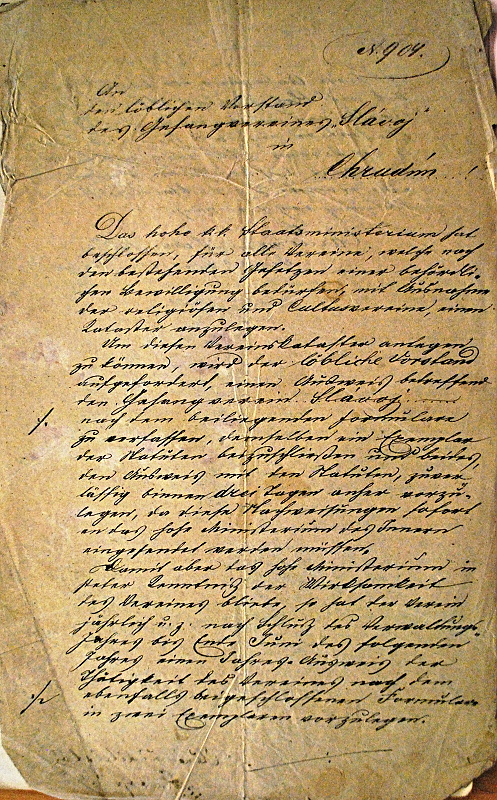 N. 904.
An
den löblichen Vorstand
des Gesangvereines „Slavoj“
in
Chrudim !
Das hohe k k Staatsministerium hat
beschlossen, für alle Vereine, welche nach
den bestehenden Gesetzen einer behördli-
chen Bewilligung bedürfen, mit Ausnahme
der religiösen und Cultusvereine, einen
Kataster anzulegen.
Um diesen Vereinskataster anlegen
zu können, wird der löbliche Vorstand
aufgefordert, einen Ausweis betreffend
den Gesangverein Slavoj
./. nach dem beiliegenden Formulare
zu verfassen, demselben ein Exemplar
der Statuten beizuschließen und beides,
den Ausweis mit den Statuten, zuver-
lässig binnen drei Tagen anher vorzu-
legen, da diese Nachweisungen sofort
an das hohe Ministerium des Innern
eingesendet werden müssen.
Damit aber das hohe Ministerium in
steter Kenntniß der Wirksamkeit
des Vereines bleibe, so hat der Verein
jährlich u. z. nach Schluß des Verwaltungs-
jahres bis Ende Juni des folgenden
Jahres einen Jahres-Ausweis der
Thätigkeit des Vereines nach dem
./. ebenfalls beigeschlossenen Formulare
in zwei Exemplaren vorzulegen.